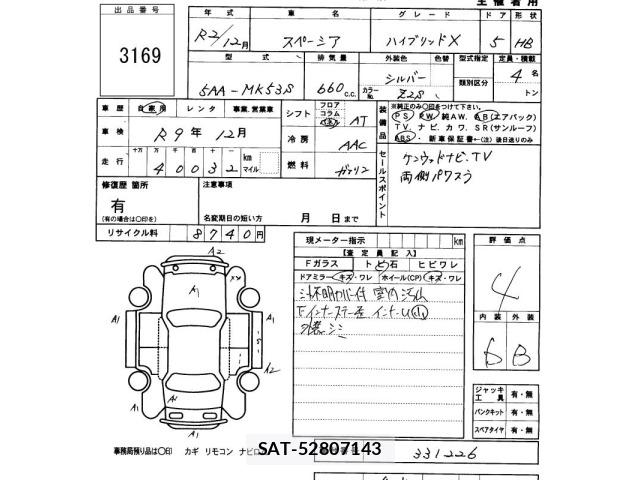 主催者用
出品番号
3169
年式 車名 グレード ドア 形状
R2/12月 スペーシア ハイブリッドX 5 HB
型式 排気量 外装色 色替 型式指定 定員・積載
5AA-MK53S 660 c.c. シルバー カラーNo. Z2S 類別区分 4名 トン
車歴 自家用 レンタ 事業・営業車
シフト フロア コラム AT
装備品 ※純正のみ○印をつけて下さい。
PS PW 純AW. AB(エアバック)
TV. ナビ. カワ. SR(サンルーフ)
ABS. 新車保証書←(注)後日送りのみ
車検 R9年12月
冷房 AAC
走行 十万 万 千 百 十 一
40032 km マイル
燃料 ガソリン
セールスポイント
ケンウッドナビ、TV
両側パワスラ
修復歴 箇所
有
(有の場合は○印を)
注意事項
名変期日の短い方 月 日まで
リサイクル料 8740円
現メーター指示 km
【査定員記入】
Fガラス トビ石 ヒビワレ
ドアミラーキズ・ワレ ホイール(CP)キズ・ワレ
評価点
4
内装 外装
6 B
A2
A1
A1
A1
A2
A1
ジャッキ工具 有・無
パンクキット 有・無
スペアタイヤ 有・無
事務局預り品は○印 カギ リモコン ナビロム
SAT-52807143
331226